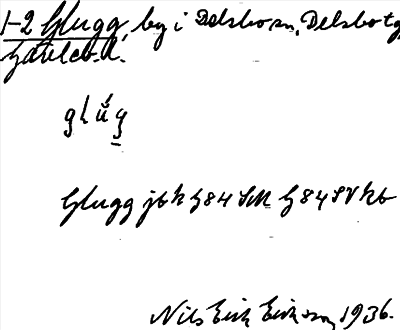 1-2 Glugg, by i Delsbo sn, Delsbo tg,
Gävleb. l.
glŭg
Glugg jbk G84 SM G84 SV kb
Nils Erik Erikson 1936.